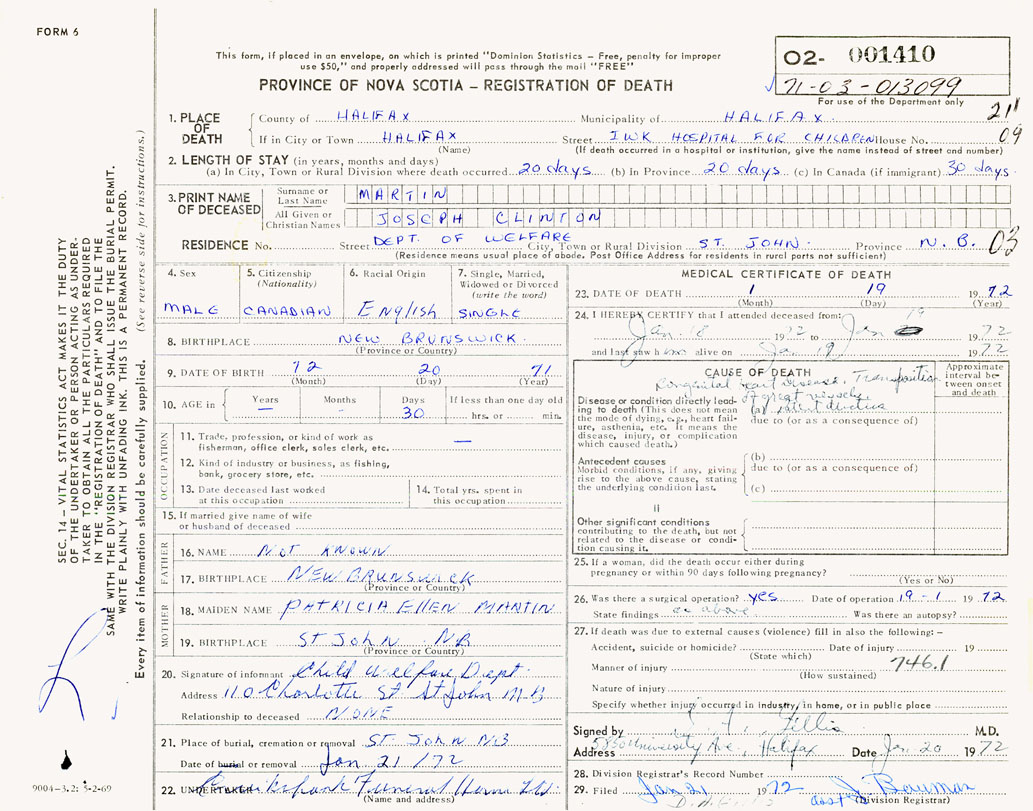 FORM 6
This form, if placed in an envelope, on which is printed "Dominion Statistics – Free, penalty for improper
use $50," and properly addressed will pass through the mail "FREE"
PROVINCE OF NOVA SCOTIA – REGISTRATION OF DEATH
O2- 001410
71-03-013099
For use of the Department only
21
09
1. PLACE OF DEATH
County of HALIFAX Municipality of HALIFAX
If in City or Town HALIFAX Street IWK HOSPITAL FOR CHILDREN House No.
(Name) (If death occurred in a hospital or institution, give the name instead of street and number)
2. LENGTH OF STAY (in years, months and days)
(a) In City, Town or Rural Division where death occurred 20 days (b) In Province 20 days (c) In Canada (if immigrant) 30 days
3. PRINT NAME OF DECEASED
Surname or Last Name MARTIN
All Given or Christian Names JOSEPH CLINTON
RESIDENCE No. Street DEPT. OF WELFARE City, Town or Rural Division ST. JOHN Province N.B. 03
(Residence means usual place of abode. Post Office Address for residents in rural parts not sufficient)
4. Sex
MALE
5. Citizenship (Nationality)
CANADIAN
6. Racial Origin
English
7. Single, Married, Widowed or Divorced (write the word)
SINGLE
8. BIRTHPLACE NEW BRUNSWICK
(Province or Country)
9. DATE OF BIRTH 12 20 71
(Month) (Day) (Year)
10. AGE in Years – Months – Days 30 If less than one day old hrs. or min.
OCCUPATION
11. Trade, profession, or kind of work as fisherman, office clerk, sales clerk, etc. —
12. Kind of industry or business, as fishing, bank, grocery store, etc.
13. Date deceased last worked at this occupation
14. Total yrs. spent in this occupation
15. If married give name of wife or husband of deceased
FATHER
16. NAME NOT KNOWN
17. BIRTHPLACE NEW BRUNSWICK
(Province or Country)
MOTHER
18. MAIDEN NAME PATRICIA ELLEN MARTIN
19. BIRTHPLACE ST JOHN NB
(Province or Country)
20. Signature of informant Child Welfare Dept
Address 110 Charlotte St St John N B
Relationship to deceased NONE
21. Place of burial, cremation or removal ST JOHN NB
Date of burial or removal Jan 21/72
22. UNDERTAKER Funeral Home Ltd
(Name and address)
MEDICAL CERTIFICATE OF DEATH
23. DATE OF DEATH 1 19 1972
(Month) (Day) (Year)
24. I HEREBY CERTIFY that I attended deceased from:
Jan. 18 1972 to Jan 19 1972
and last saw h alive on Jan 19 1972
CAUSE OF DEATH
Approximate interval between onset and death
Congenital heart disease, Transposition
of great vessels
Disease or condition directly leading to death (This does not mean the mode of dying, e.g., heart failure, asthenia, etc. It means the disease, injury, or complication which caused death.)
(a) patent ductus
due to (or as a consequence of)
Antecedent causes
Morbid conditions, if any, giving rise to the above cause, stating the underlying condition last.
(b)
due to (or as a consequence of)
(c)
II
Other significant conditions contributing to the death, but not related to the disease or condition causing it.
25. If a woman, did the death occur either during pregnancy or within 90 days following pregnancy?
(Yes or No)
26. Was there a surgical operation? yes Date of operation 19-1 1972
State findings as above Was there an autopsy?
27. If death was due to external causes (violence) fill in also the following: –
Accident, suicide or homicide? Date of injury 19
(State which)
Manner of injury 746.1
(How sustained)
Nature of injury
Specify whether injury occurred in industry, in home, or in public place
Signed by Gillis M.D.
Address 5850 University Ave, Halifax Date Jan 20 1972
28. Division Registrar's Record Number
29. Filed Jan 21 1972 J. Bauman
Division Registrar)
SEC. 14 – VITAL STATISTICS ACT MAKES IT THE DUTY
OF THE UNDERTAKER OR PERSON ACTING AS UNDER-
TAKER TO OBTAIN ALL THE PARTICULARS REQUIRED
IN THE "REGISTRATION OF DEATH" AND TO FILE THE
SAME WITH THE DIVISION REGISTRAR WHO SHALL ISSUE THE BURIAL PERMIT.
WRITE PLAINLY WITH UNFADING INK. THIS IS A PERMANENT RECORD.
Every item of information should be carefully supplied. (See reverse side for instructions.)
9004-3.2: 5-2-69